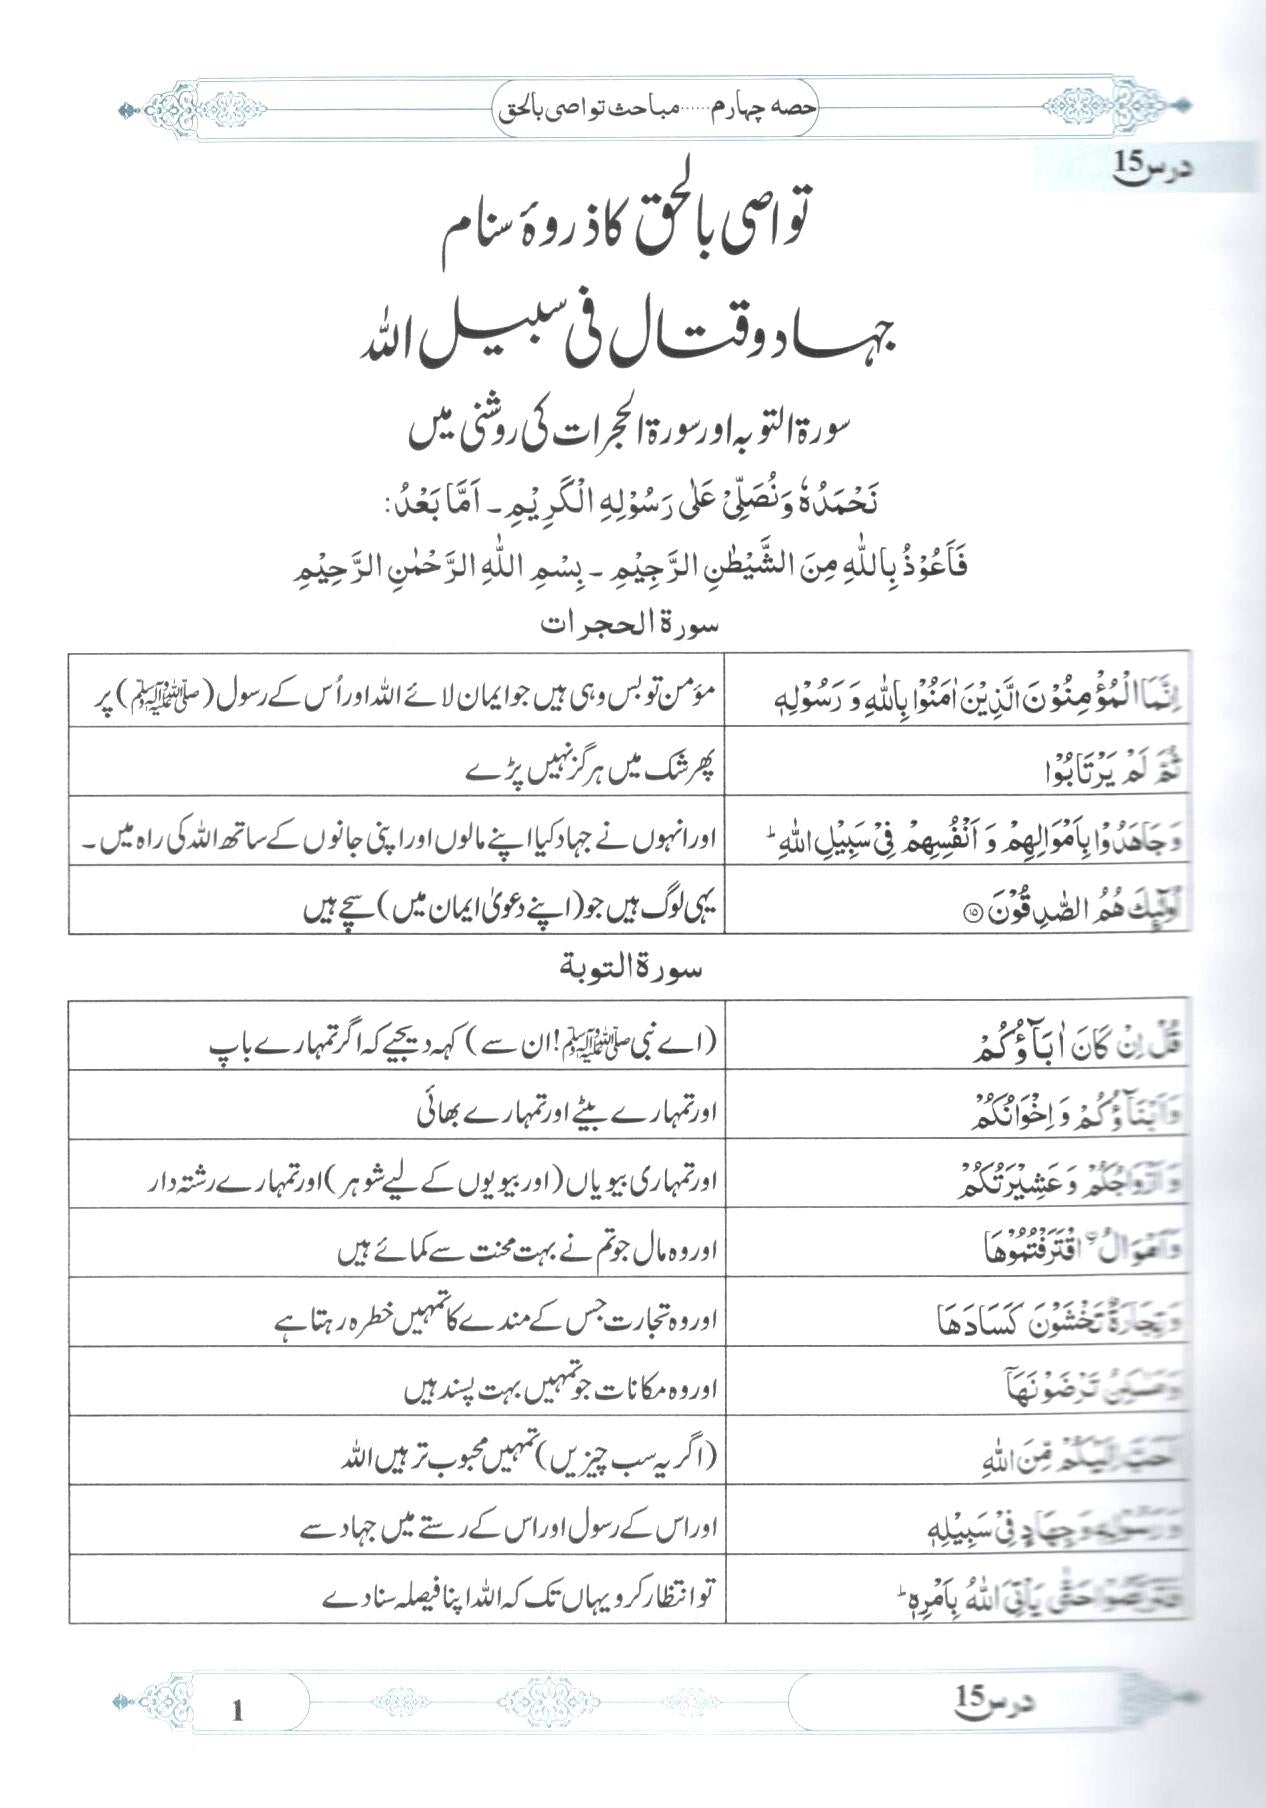 حصہ چہارم......مباحث تواصی بالحق
درس 15
تواصی بالحق کا ذروۂ سنام
جہاد و قتال فی سبیل اللہ
سورۃ التوبہ اور سورۃ الحجرات کی روشنی میں
نَحْمَدُہٗ وَنُصَلِّیْ عَلٰی رَسُوْلِہِ الْکَرِیْمِ ۔ اَمَّا بَعْدُ:
فَاَعُوْذُ بِاللّٰہِ مِنَ الشَّیْطٰنِ الرَّجِیْمِ ۔ بِسْمِ اللّٰہِ الرَّحْمٰنِ الرَّحِیْمِ
سورۃ الحجرات
اِنَّمَا الْمُؤْمِنُوْنَ الَّذِیْنَ اٰمَنُوْا بِاللّٰہِ وَ رَسُوْلِہٖ مؤمن تو بس وہی ہیں جو ایمان لائے اللہ اور اُس کے رسول (ﷺ) پر
ثُمَّ لَمْ یَرْتَابُوْا پھر شک میں ہرگز نہیں پڑے
وَ جَاھَدُوْا بِاَمْوَالِھِمْ وَ اَنْفُسِھِمْ فِیْ سَبِیْلِ اللّٰہِ ؕ اور انہوں نے جہاد کیا اپنے مالوں اور اپنی جانوں کے ساتھ اللہ کی راہ میں۔
اُولٰٓئِکَ ھُمُ الصّٰدِقُوْنَ ۝۱۵ یہی لوگ ہیں جو (اپنے دعویٰ ایمان میں) سچے ہیں
سورۃ التوبۃ
قُلْ اِنْ کَانَ اٰبَآؤُکُمْ (اے نبی ﷺ! ان سے) کہہ دیجیے کہ اگر تمہارے باپ
وَ اَبْنَآؤُکُمْ وَ اِخْوَانُکُمْ اور تمہارے بیٹے اور تمہارے بھائی
وَ اَزْوَاجُکُمْ وَ عَشِیْرَتُکُمْ اور تمہاری بیویاں (اور بیویوں کے لیے شوہر) اور تمہارے رشتہ دار
وَ اَمْوَالُ ۨ اقْتَرَفْتُمُوْھَا اور وہ مال جو تم نے بہت محنت سے کمائے ہیں
وَ تِجَارَۃٌ تَخْشَوْنَ کَسَادَھَا اور وہ تجارت جس کے مندے کا تمہیں خطرہ رہتا ہے
وَ مَسٰکِنُ تَرْضَوْنَھَآ اور وہ مکانات جو تمہیں بہت پسند ہیں
اَحَبَّ اِلَیْکُمْ مِّنَ اللّٰہِ (اگر یہ سب چیزیں) تمہیں محبوب تر ہیں اللہ
وَ رَسُوْلِہٖ وَ جِھَادٍ فِیْ سَبِیْلِہٖ اور اس کے رسول اور اس کے رستے میں جہاد سے
فَتَرَبَّصُوْا حَتّٰی یَاْتِیَ اللّٰہُ بِاَمْرِہٖ ؕ تو انتظار کرو یہاں تک کہ اللہ اپنا فیصلہ سنا دے
درس 15
1